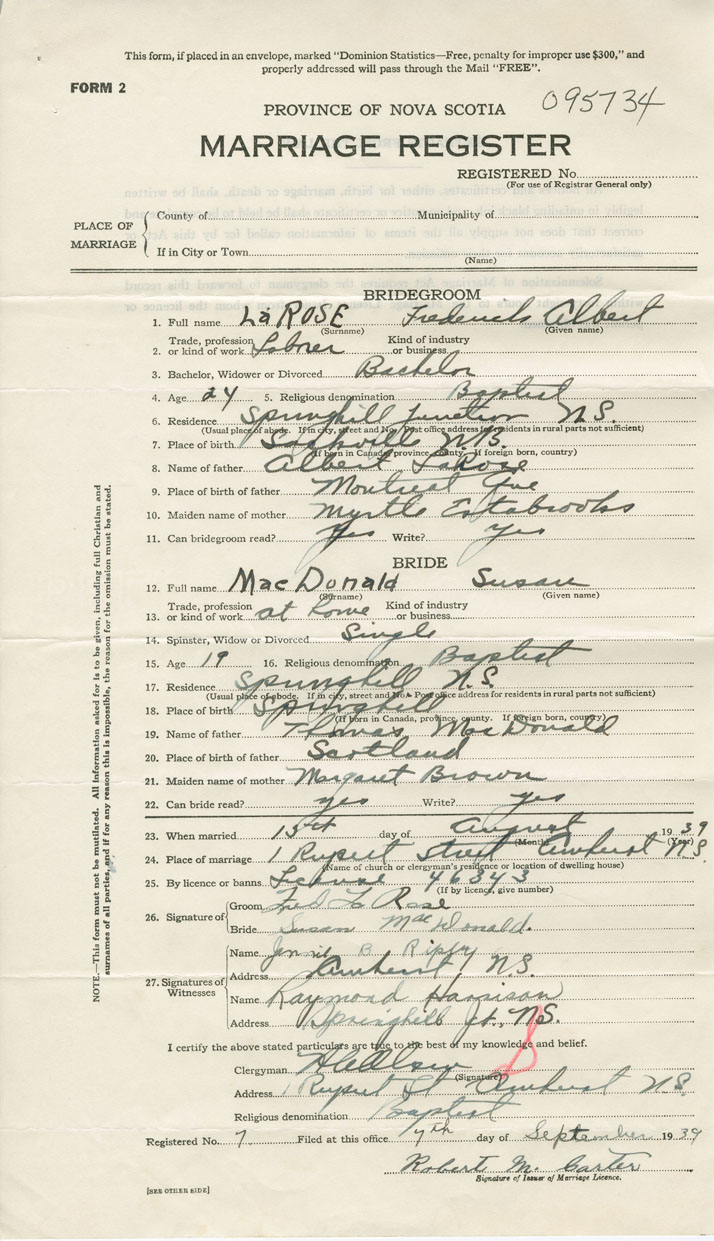 This form, if placed in an envelope, marked "Dominion Statistics—Free, penalty for improper use $300," and
properly addressed will pass through the Mail "FREE".
FORM 2
095734
PROVINCE OF NOVA SCOTIA
MARRIAGE REGISTER
REGISTERED No.
(For use of Registrar General only)
PLACE OF MARRIAGE
County of Municipality of
If in City or Town
(Name)
BRIDEGROOM
1. Full name LaROSE Frederick Albert
(Surname) (Given name)
2. Trade, profession or kind of work Labrer Kind of industry or business
3. Bachelor, Widower or Divorced Bachelor
4. Age 24 5. Religious denomination Baptist
6. Residence Springhill Junction N.S.
(Usual place of abode. If in city, street and No. Post office address for residents in rural parts not sufficient)
7. Place of birth Sackville N.B.
(If born in Canada, province, county. If foreign born, country)
8. Name of father Albert LaRose
9. Place of birth of father Montreal Que
10. Maiden name of mother Myrtle Estabrooks
11. Can bridegroom read? Yes Write? yes
BRIDE
12. Full name MacDonald Susan
(Surname) (Given name)
13. Trade, profession or kind of work at home Kind of industry or business
14. Spinster, Widow or Divorced Single
15. Age 19 16. Religious denomination Baptist
17. Residence Springhill N.S.
(Usual place of abode. If in city, street and No. Post office address for residents in rural parts not sufficient)
18. Place of birth Springhill
(If born in Canada, province, county. If foreign born, country)
19. Name of father Thomas MacDonald
20. Place of birth of father Scotland
21. Maiden name of mother Margaret Brown
22. Can bride read? yes Write? yes
23. When married day of August 1939
(Month) (Year)
24. Place of marriage 1 Rupert Street Amherst N.S.
(Name of church or clergyman's residence or location of dwelling house)
25. By licence or banns License 46343
(If by licence, give number)
26. Signature of
Groom Fred La Rose
Bride Susan MacDonald.
27. Signatures of Witnesses
Name B
Address Amherst, N.S.
Name Raymond Harrison
Address Springhill Jt., N.S.
I certify the above stated particulars are true to the best of my knowledge and belief.
Clergyman
(Signature)
Address 1 Rupert St Amherst N.S.
Religious denomination Baptist
Registered No. 7 Filed at this office 7th day of September 1939
Robert M. Carter
Signature of Issuer of Marriage Licence.
[SEE OTHER SIDE]
NOTE.—This form must not be mutilated. All information asked for is to be given, including full Christian and
surnames of all parties, and if for any reason this is impossible, the reason for the omission must be stated.